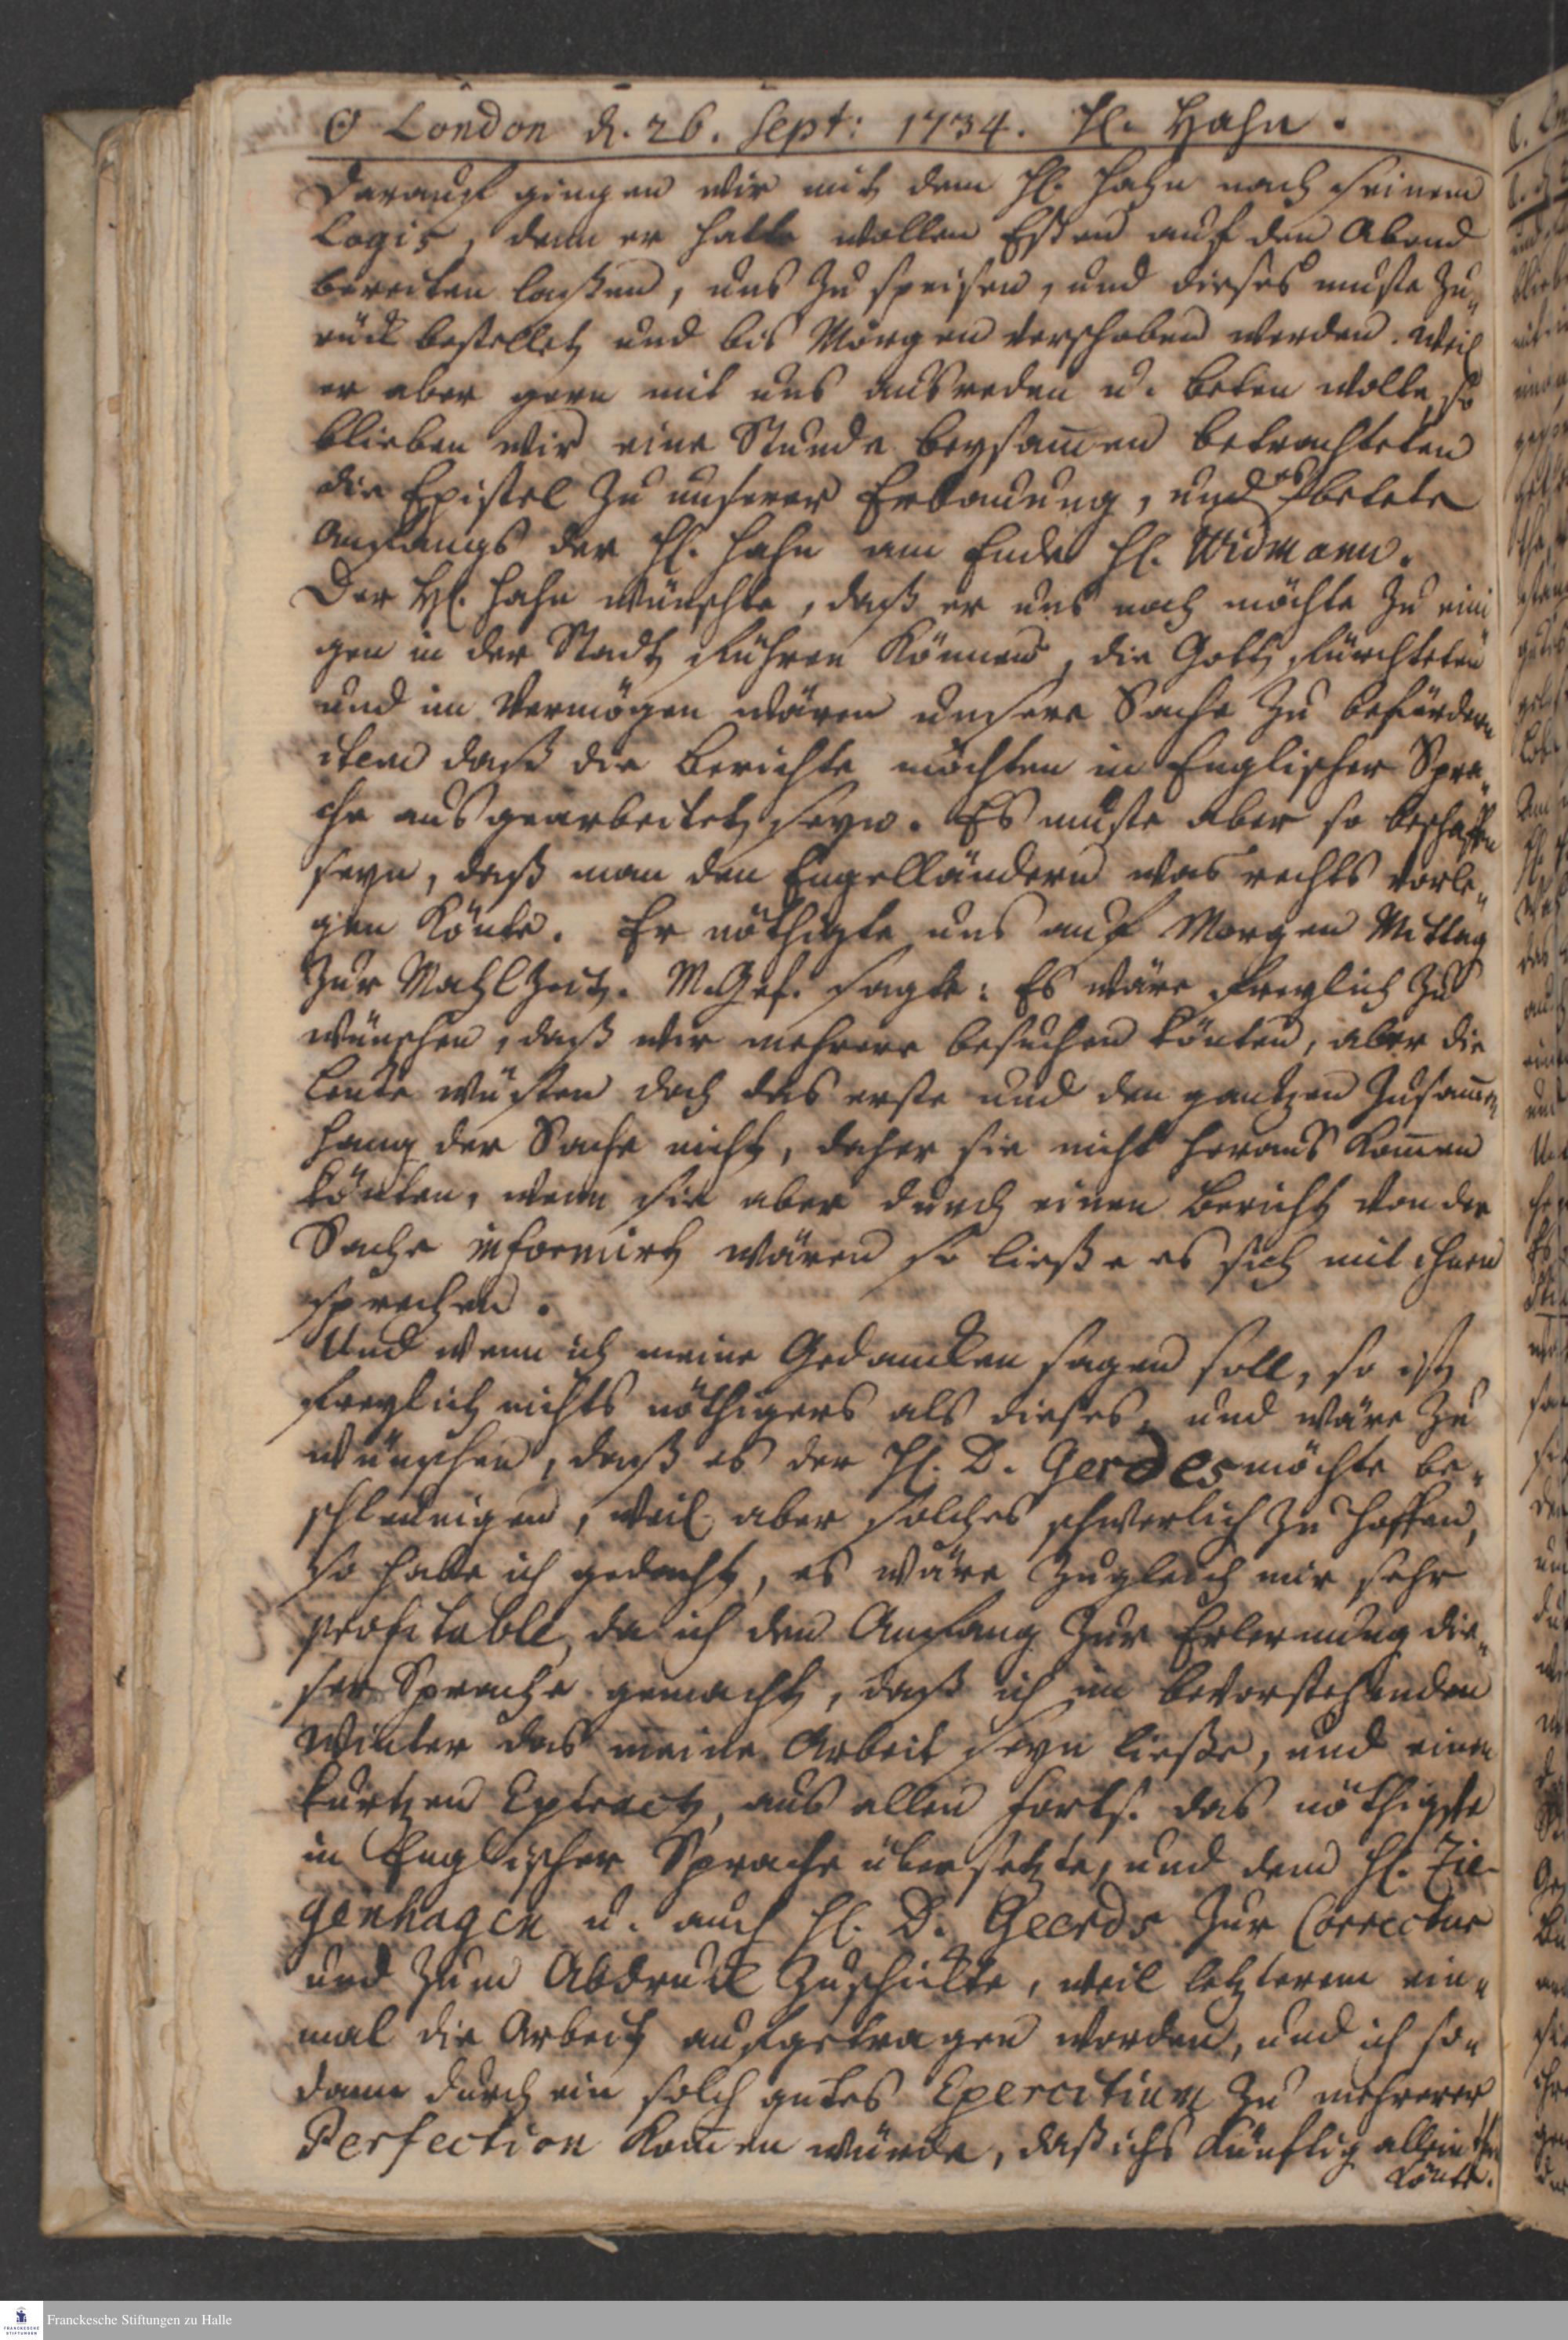 ☉ London d. 26. Sept: 1734. H. Hahn.
Darauf gingen wir mit dem H. Hahn nach seinem
Logis, denn er hatte wollen Essen auf den Abend
bereiten laßen, uns zu speisen, und dieses muste zu„
rück bestellet und bis Morgen verschoben werden. Weil
er aber gern mit uns ausreden u. beten wolte, so
blieben wir eine Stunde beysam̅en betrachteten
die Epistel zu unserer Erbauung, und es betete
Anfangs der H. Hahn am Ende H. Widmann.
Der H. Hahn wünschte, daß er uns noch möchte zu eini
gen in der Stadt führen können, die Gott fürchteten
und im Vermögen wären unsere Sache zu befördern
item daß die Berichte möchten in Englischer Spra„
che ausgearbeitet seyn. Es müste aber so beschaffen
seyn, daß man den Engelländern was rechts vorle„
gen könte. Er nöthigte uns auf Morgen Mittag
zur Mahlzeit. M. Gef. sagte: Es wäre freylich zu
wünschen, daß wir mehrere besuchen könten, aber die
Leute wüsten doch das erste und den gantzen Zusam̅en
hang der Sache nicht, daher sie nicht heraus kom̅en
könten, wenn sie aber durch einen Bericht von der
Sache informirt wären so ließe es sich mit ihnen
sprechen.
Und wenn ich meine Gedancken sagen soll, so ist
freylich nichts nöthigers als dieses, und wäre zu
wünschen, daß es der H. D. Gerdes möchte be„
schleunigen, weil aber solches schwerlich zu hoffen,
so habe ich gedacht, es wäre zugleich mir sehr
profitable, da ich den Anfang zur Erlernung die„
ser Sprache gemacht, daß ich im bevorstehenden
Winter das meine Arbeit seyn ließe, und einen
kurtzen Extract, aus allen Forts. das nöthigste
in Englischer Sprache übersetzte, und dem H. Zie„
genhagen u. auch H. D. Geerds zur Correctur
und zum Abdruck zuschickte, weil letzterem ein„
mal die Arbeit aufgetragen worden, und ich so„
dann durch ein solch gutes Exercitium zu mehrerer
Perfection kom̅en würde, daß ichs künftig allein thun
könte.
Franckesche Stiftungen zu Halle